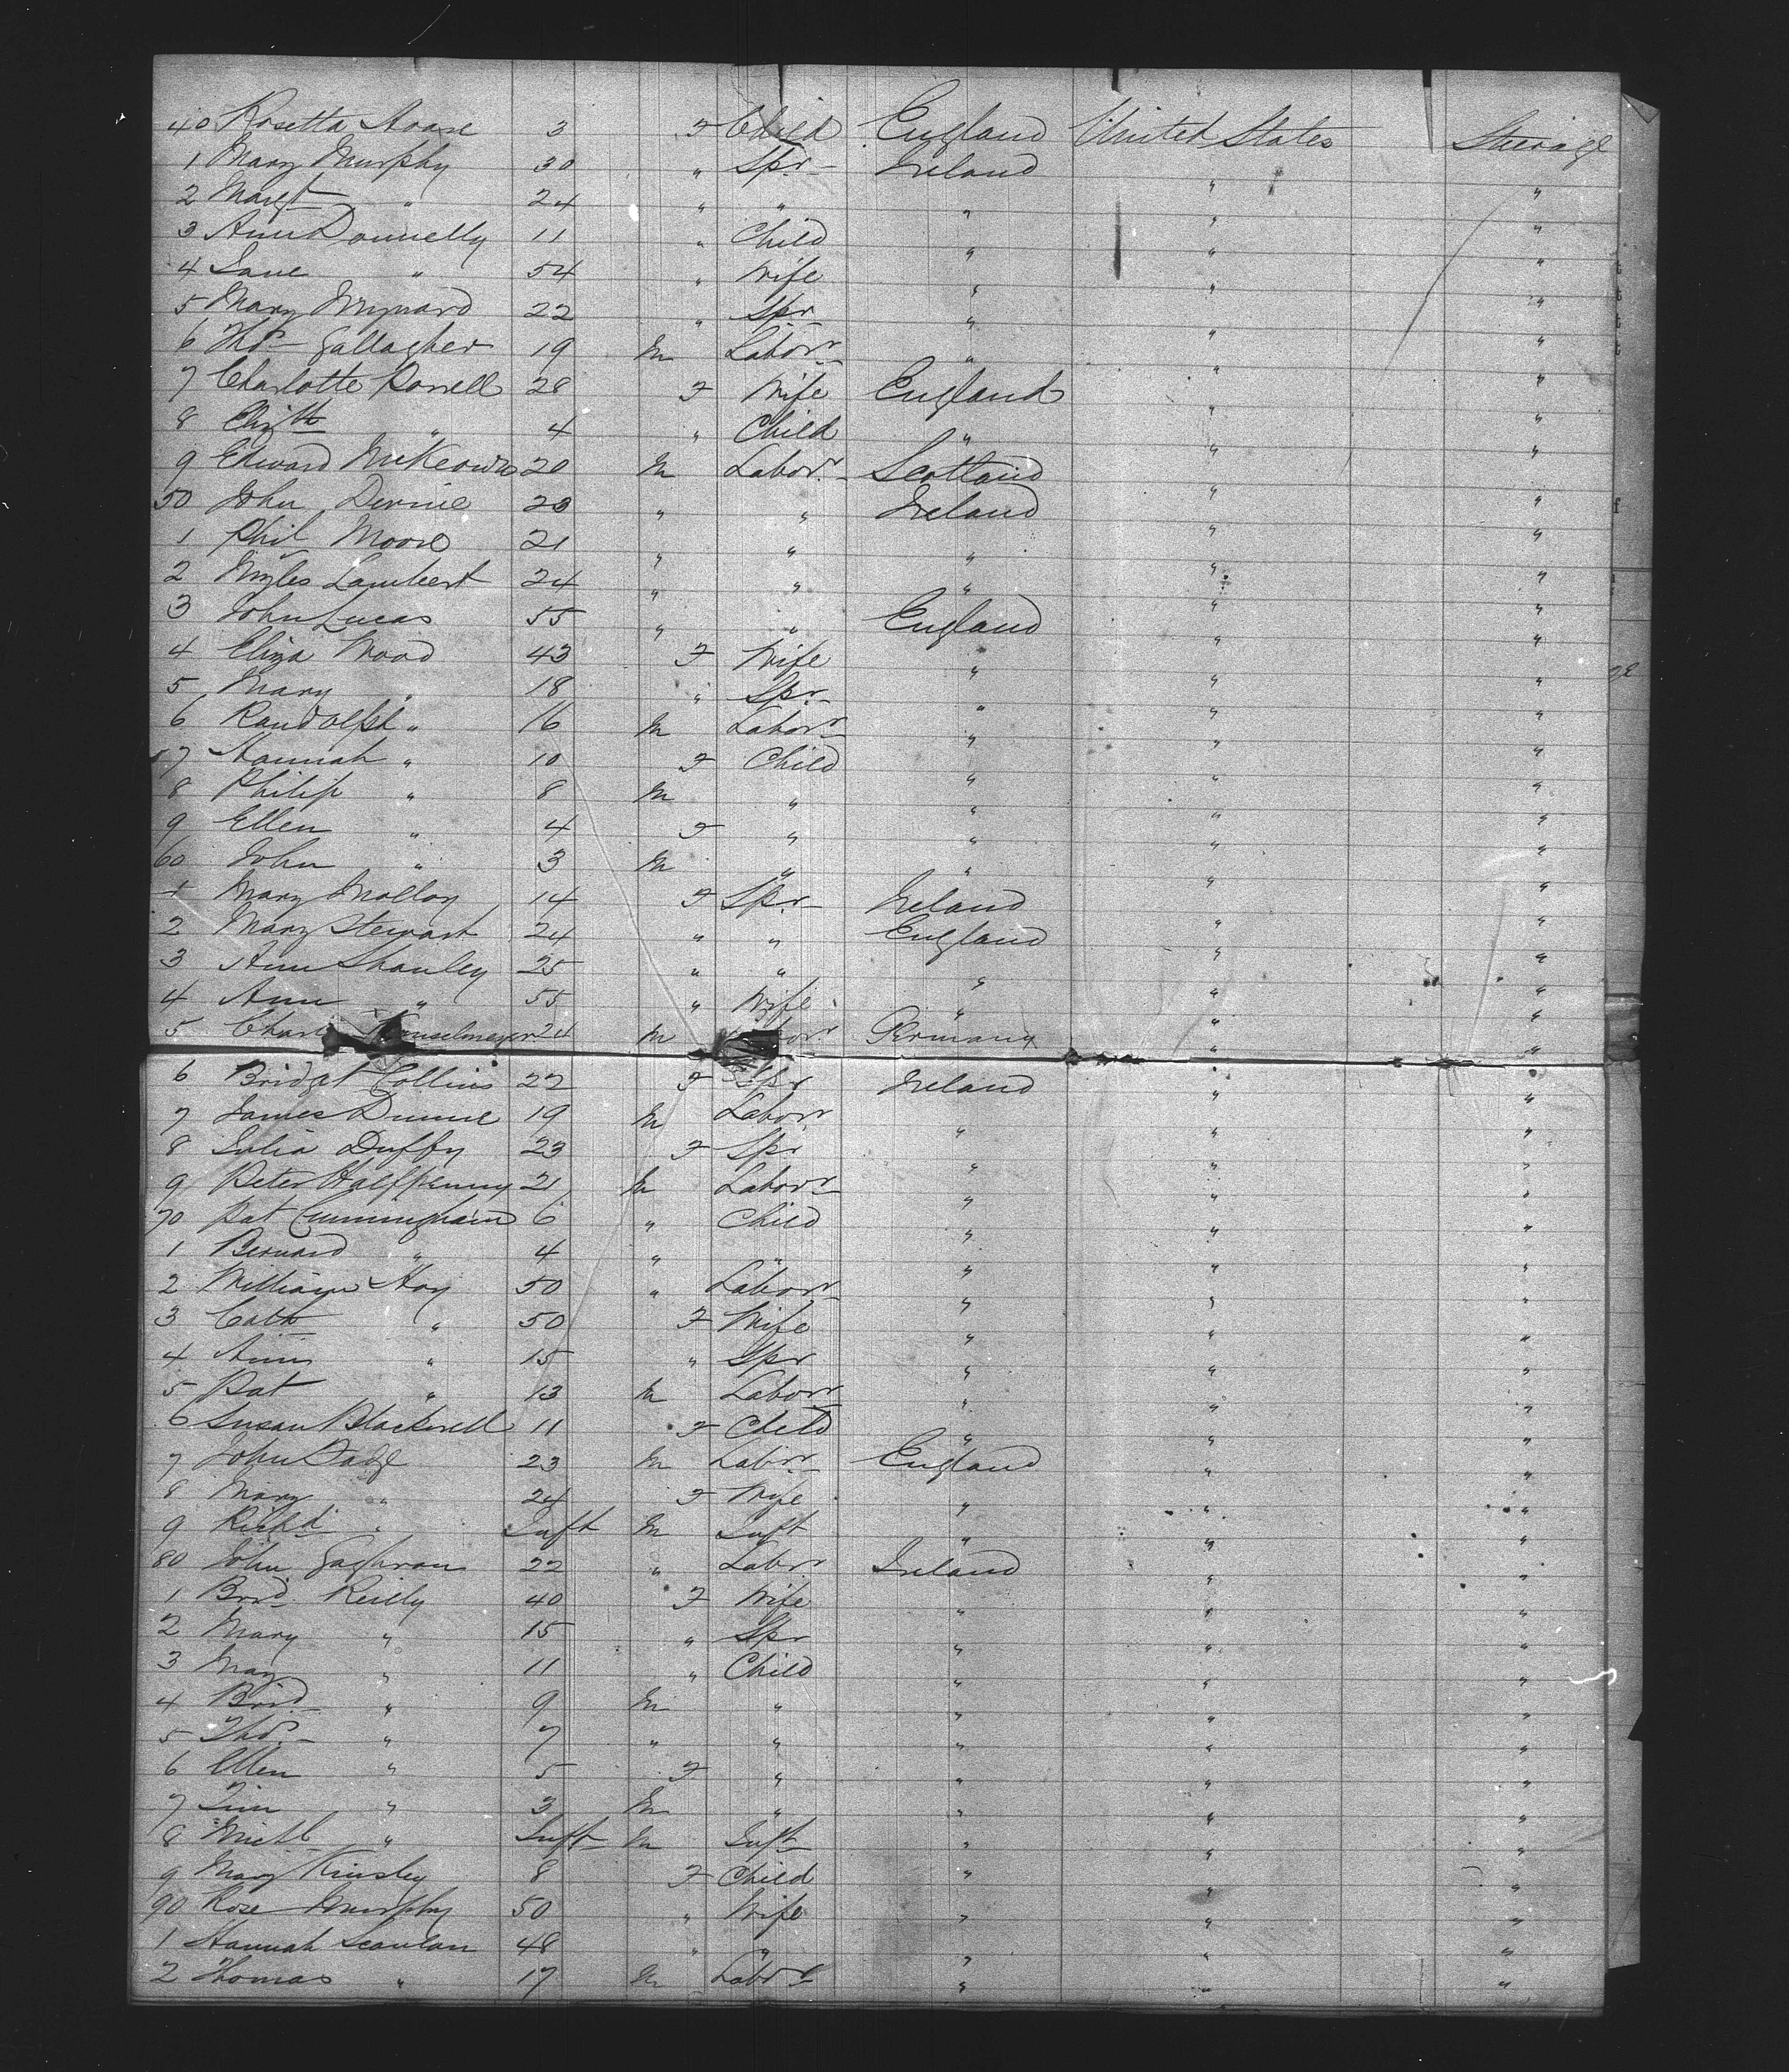 40 Rosetta Hoare 3 F Child England United States Steerage
1 Mary Murphy 30 " Spr Ireland " "
2 Margt " 24 " " " " "
3 Ann Donnelly 11 " Child " " "
4 Jane " 54 " Wife " " "
5 Mary Wynard 22 " Spr " " "
6 Thos Gallagher 19 M Labor " " "
7 Charlotte Parrell 28 F Wife England " "
8 Elizth " 4 " Child " " "
9 Edward McKeown 20 M Labor Scotland " "
50 John Devine 23 " " Ireland " "
1 Phil Moore 21 " " " " "
2 Myles Lambert 24 " " " " "
3 John Lucas 55 " " England " "
4 Eliza Wood 43 F Wife " " "
5 Mary " 18 " Spr " " "
6 Randolph " 16 M Labor " " "
7 Hannah " 10 F Child " " "
8 Philip " 8 M " " " "
9 Ellen " 4 F " " " "
60 John " 3 M " " " "
1 Mary Molloy 14 F Spr Ireland " "
2 Mary Stewart 24 " " England " "
3 Ann Shanley 25 " " " " "
4 Ann " 55 " Wife " " "
5 24 M Germany " "
6 Bridget Collins 22 F Spr Ireland " "
7 James Dunne 19 M Labor " " "
8 Julia Duffy 23 F Spr " " "
9 Peter Halfpenny 21 M Labor " " "
70 Pat Cunningham 6 " Child " " "
1 Bernard " 4 " " " " "
2 William Hoy 50 " Labor " " "
3 Cath " 50 F Wife " " "
4 Ann " 15 " Spr " " "
5 Pat " 13 M Labor " " "
6 Susan Blackwell 11 F Child " " "
7 John 23 M Labor England " "
8 Mary " 24 F Wife " " "
9 Richd " Inft M Inft " " "
80 John Gaghran 22 " Labr Ireland " "
1 Brid Reilly 40 F Wife " " "
2 Mary " 15 " Spr " " "
3 May " 11 " Child " " "
4 " 9 M " " " "
5 Thos " 7 " " " " "
6 Ellen " 5 F " " " "
7 Tim " 3 M " " " "
8 Michl " Inft M Inft " " "
9 Mary Kinsley 8 F Child " " "
90 Rose Murphy 50 " Wife " " "
1 Hannah Scanlan 48 " " " " "
2 Thomas " 17 M Labor " " "